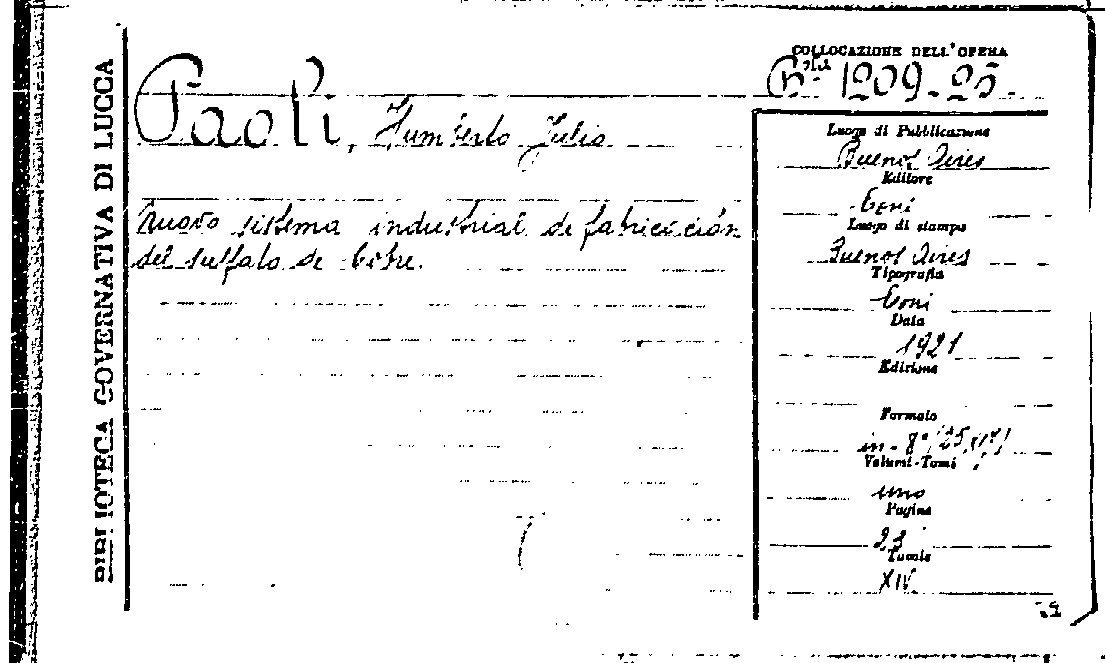 BIBLIOTECA GOVERNATIVA DI LUCCA
Paoli, Humberto Julio
Nuovo sistema industrial de fabricación
del sulfato de Cobre.
COLLOCAZIONE DELL'OPERA
1209-25.
Luogo di Pubblicazione
Buenos Aires
Editore
Coni
Luogo di stampa
Buenos Aires
Tipografia
Coni
Data
1921
Edizione
Formato
in-8°
Volumi-Tomi
uno
Pagine
23
Tavole
XIV